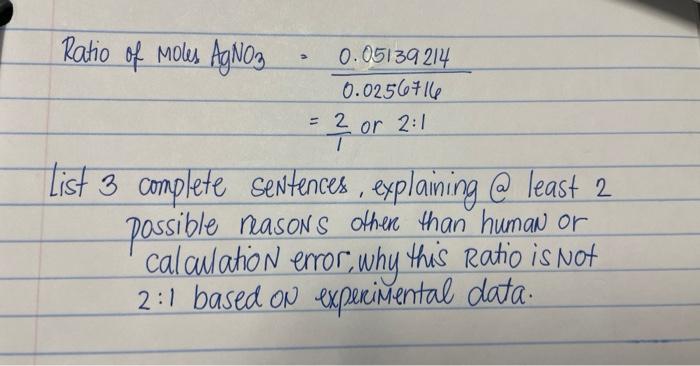 Ratio of moles AgNO3 = 0.05139214
0.0256716
= 2 or 2:1
1
List 3 complete sentences, explaining @ least 2
possible reasons other than human or
calculation error, why this Ratio is Not
2:1 based on experimental data.